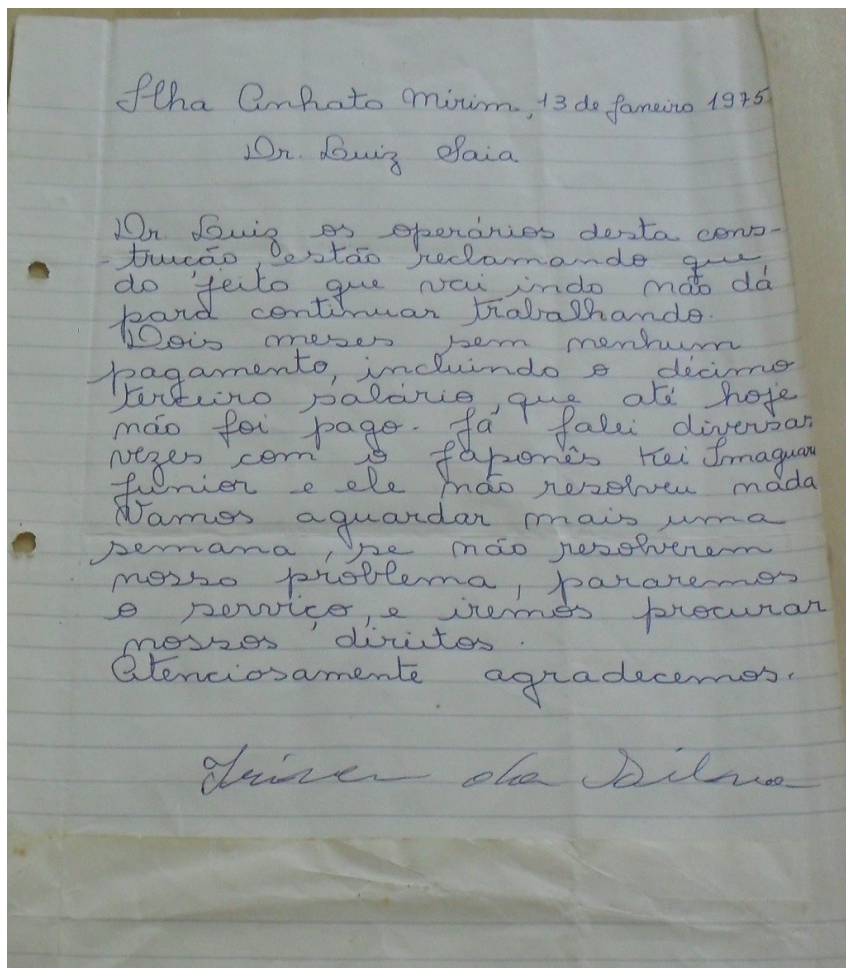 Ilha Anhato Mirim, 13 de Janeiro 1975
Dr. Luiz Saia
Dr. Luiz os operários desta cons-
-trução, estão reclamando que
do jeito que vai indo não dá
para continuar trabalhando.
Dois meses sem nenhum
pagamento, incluindo o décimo
terceiro salário, que até hoje
não foi pago. Já falei diversas
vezes com o Japonês Kei
Junior e ele não resolveu nada
Vamos aguardar mais uma
semana, se não resolverem
nosso problema, pararemos
o serviço, e iremos procurar
nossos direitos.
Atenciosamente agradecemos.
da Silva